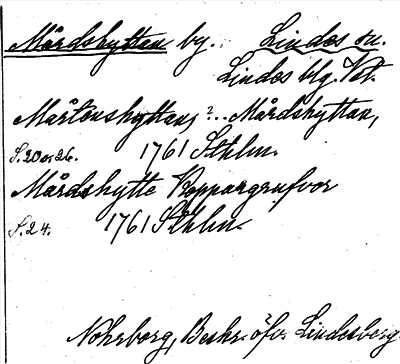 Mårdshyttan by. Lindes sn.
Lindes blg. Vst.
Mårtenshyttan, ?.. Mårdshyttan,
S. 20 o. 26. 1761 Sthlm.
Mårdshytte Koppargrufvor
S. 24. 1761 Sthlm.
Nohrborg, Beskr. öfv. Lindesberg.